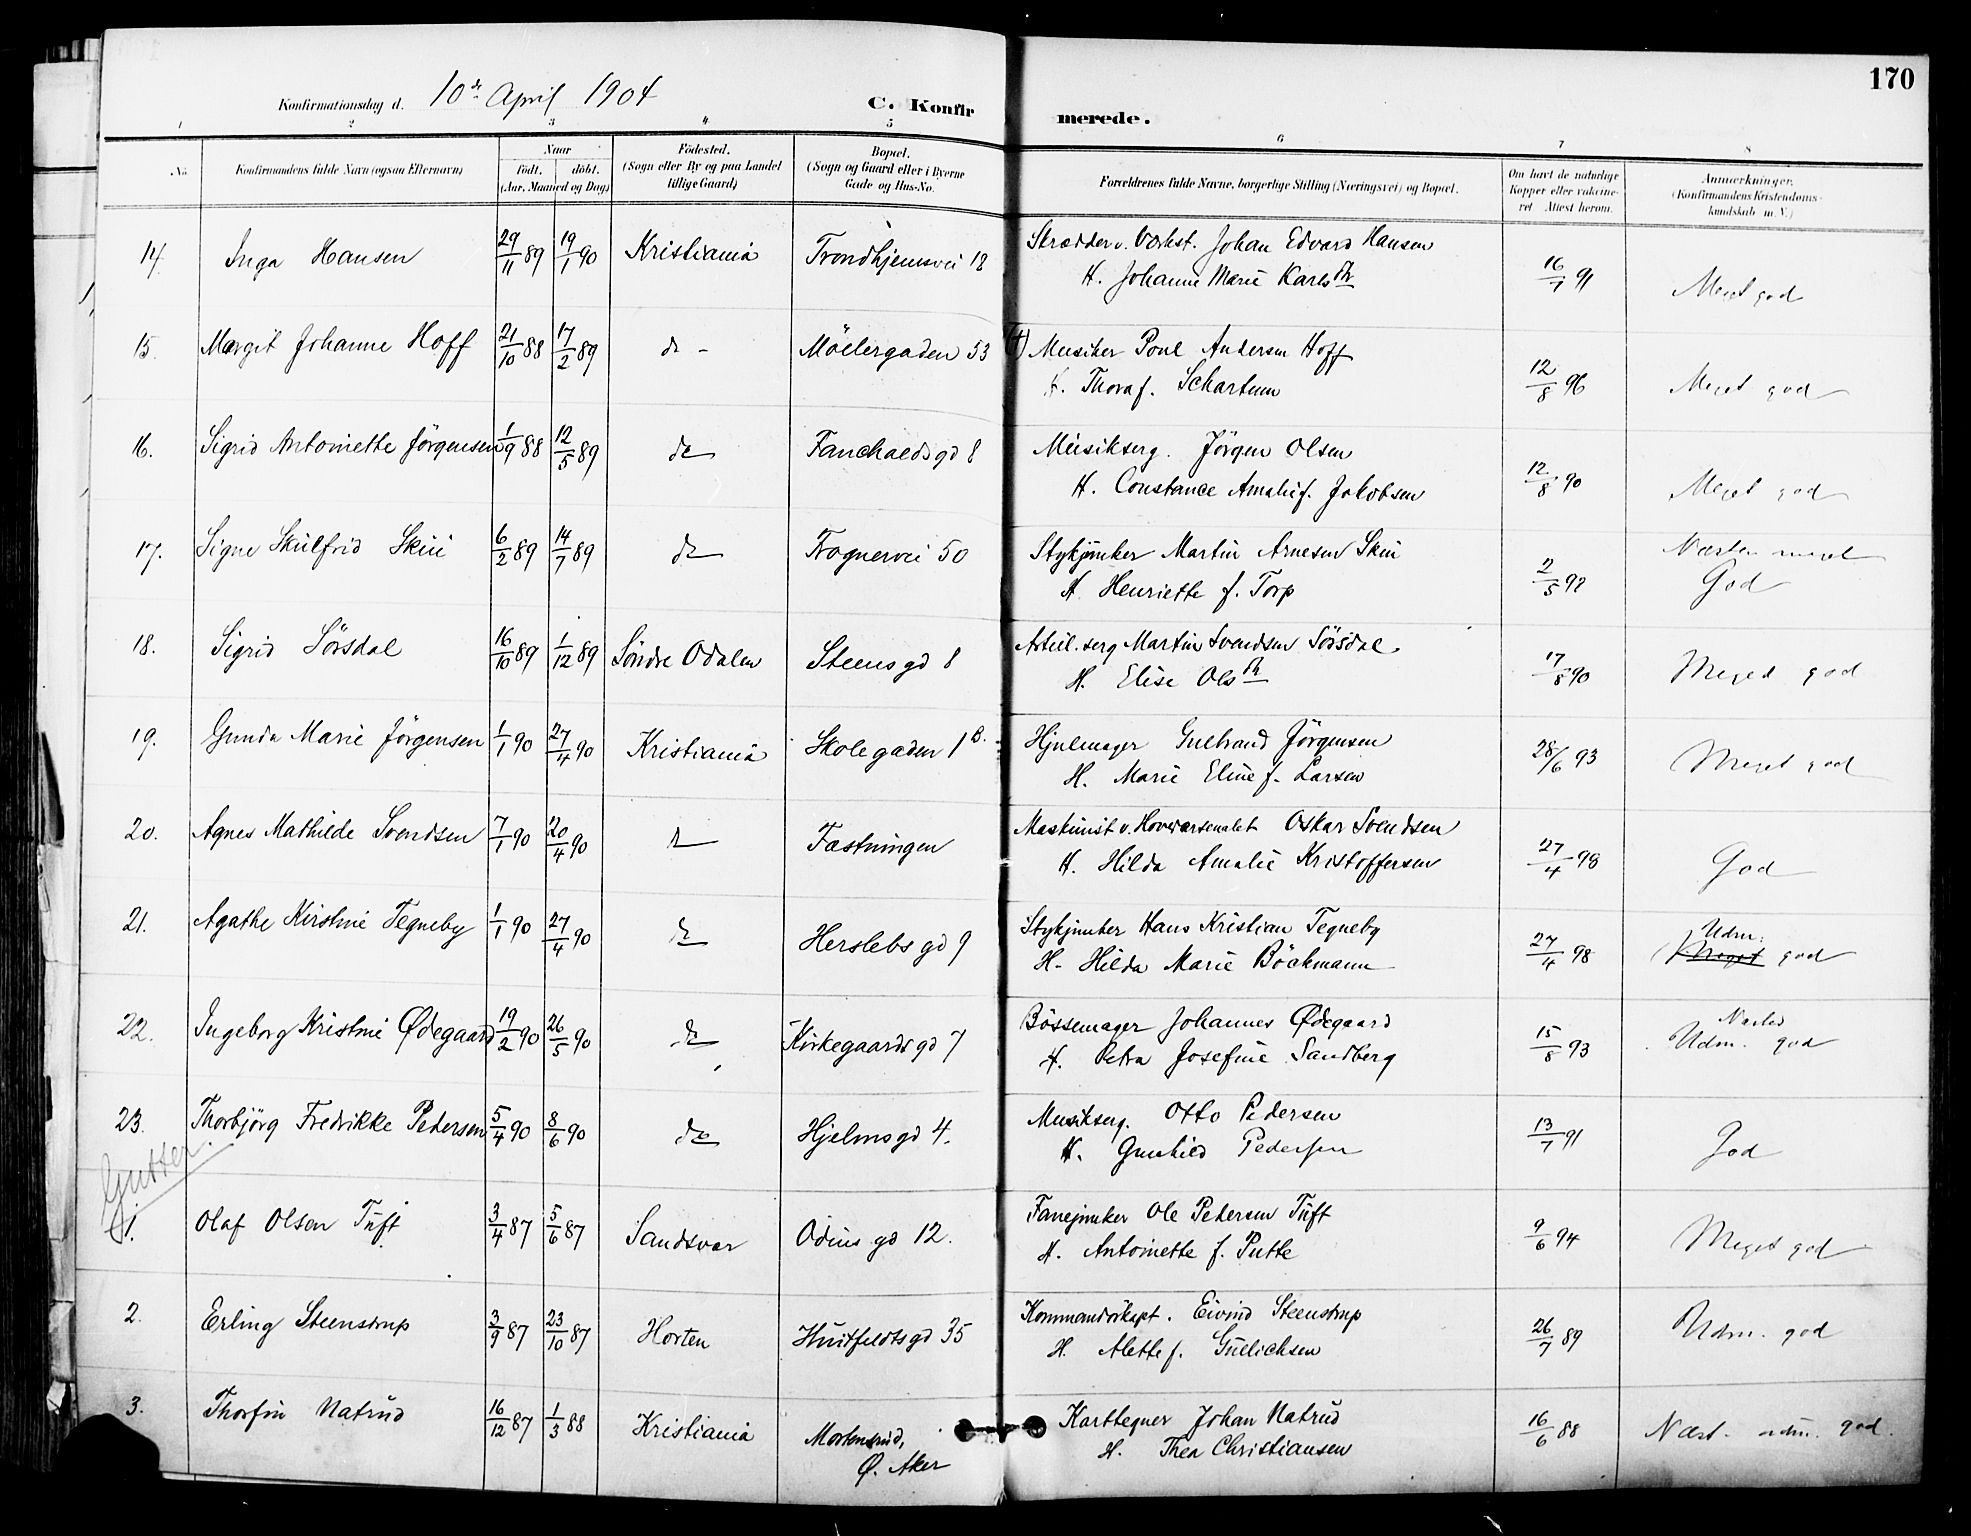 170
Konfirmationsdag d. 10de April 1904
C. Konfir merede.
1 2 3 4 5 6 7 8
No. Konfirmandens fulde Navn (ogsaa Efternavn) Naar født. døbt. (Aar, Maaned og Dag) Fødested. (Sogn eller By og paa Landet tillige Gaard) Bopæl. (Sogn og Gaard eller i Byerne Gade og Hus-No. Forældrenes fulde Navne, borgerlige Stilling (Næringsvei) og Bopæl. Om havt de naturlige Kopper eller vakcineret Attest herom. Anmærkninger. (Konfirmandens Kristendomskundskab m. V.)
14. Inga Hansen 29/11 89 19/1 90 Kristiania Trondhjemsvei 18 Skrædder v. Værkst. Johan Edvard Hansen
H. Johanne Marie Karlsdtr 16/7 91 Meget god
15. Margit Johanne Hoff 21/10 88 17/2 89 do - Möllergaden 53 (†) Musiker Poul Andersen Hoff
H. Thora f. Schartum 12/8 96 Meget god
16. Sigrid Antoinette Jörgensen 1/9 88 12/5 89 do Fauchaldsgd 8 Musikserg. Jörgen Olsen
H. Constance Amalie f. Jakobsen 12/8 90 Meget god
17. Signe Skulfrid Skui 6/2 89 14/7 89 do Frognervei 50 Stykjunker Martin Arnesen Skui
H. Henriette f. Torp 2/5 92 Næsten meget
God
18. Sigrid Sörsdal 16/10 89 1/12 89 Söndre Odalen Steensgd 8 Artil. serg Martin Svendsen Sörsdal
H. Elise Olsdtr 17/8 90 Meget god
19. Gunda Marie Jörgensen 1/1 90 27/4 90 Kristiania Skolegaden 1 B. Hjulmager Gulbrand Jörgensen
H. Marie Eline f. Larsen 28/6 93 Meget god
20. Agnes Mathilde Svendsen 7/1 90 20/4 90 do Fæstningen Maskinist v. Hovedarsenalet Oskar Svendsen
H. Hilda Amalie Kristoffersen 27/4 98 God
21. Agathe Kirstine Tegneby 1/1 90 27/4 90 do Herslebs gd 9 Stykjunker Hans Kristian Tegneby
H. Hilda Marie Böckmann 27/4 98 Udm.
Meget god
22. Ingeborg Kristine Ødegaard 19/2 90 26/5 90 do Kirkegaards gd 7 Bössemager Johannes Ødegaard
H. Petra Josefine Sandberg 15/8 93 Næsten
Udm. god
23. Thorbjörg Fredrikke Petersen 5/4 90 8/6 90 do Hjelmsgd 4. Musikserg. Otto Pedersen
H. Gunhild Pedersen 13/7 91 God
Gutter.
1. Olaf Olsen Tuft 3/4 87 5/6 87 Sandsvær Odins gd 12. Fanejunker Ole Petersen Tuft
H. Antoinette f. Putte 9/6 94 Meget god
2. Erling Steenstrup 3/9 87 23/10 87 Horten Huitfeldtsgd 35 Kommandörkapt. Eivind Steenstrup
H. Alette f. Gullichsen 26/7 89 Udm. god
3. Thorfin Natrud 16/12 87 1/3 88 Kristiania Mortensrud,
Ø. Aker Karttegner Johan Natrud
H. Thea Christiansen 16/6 88 Næst. udm. god.